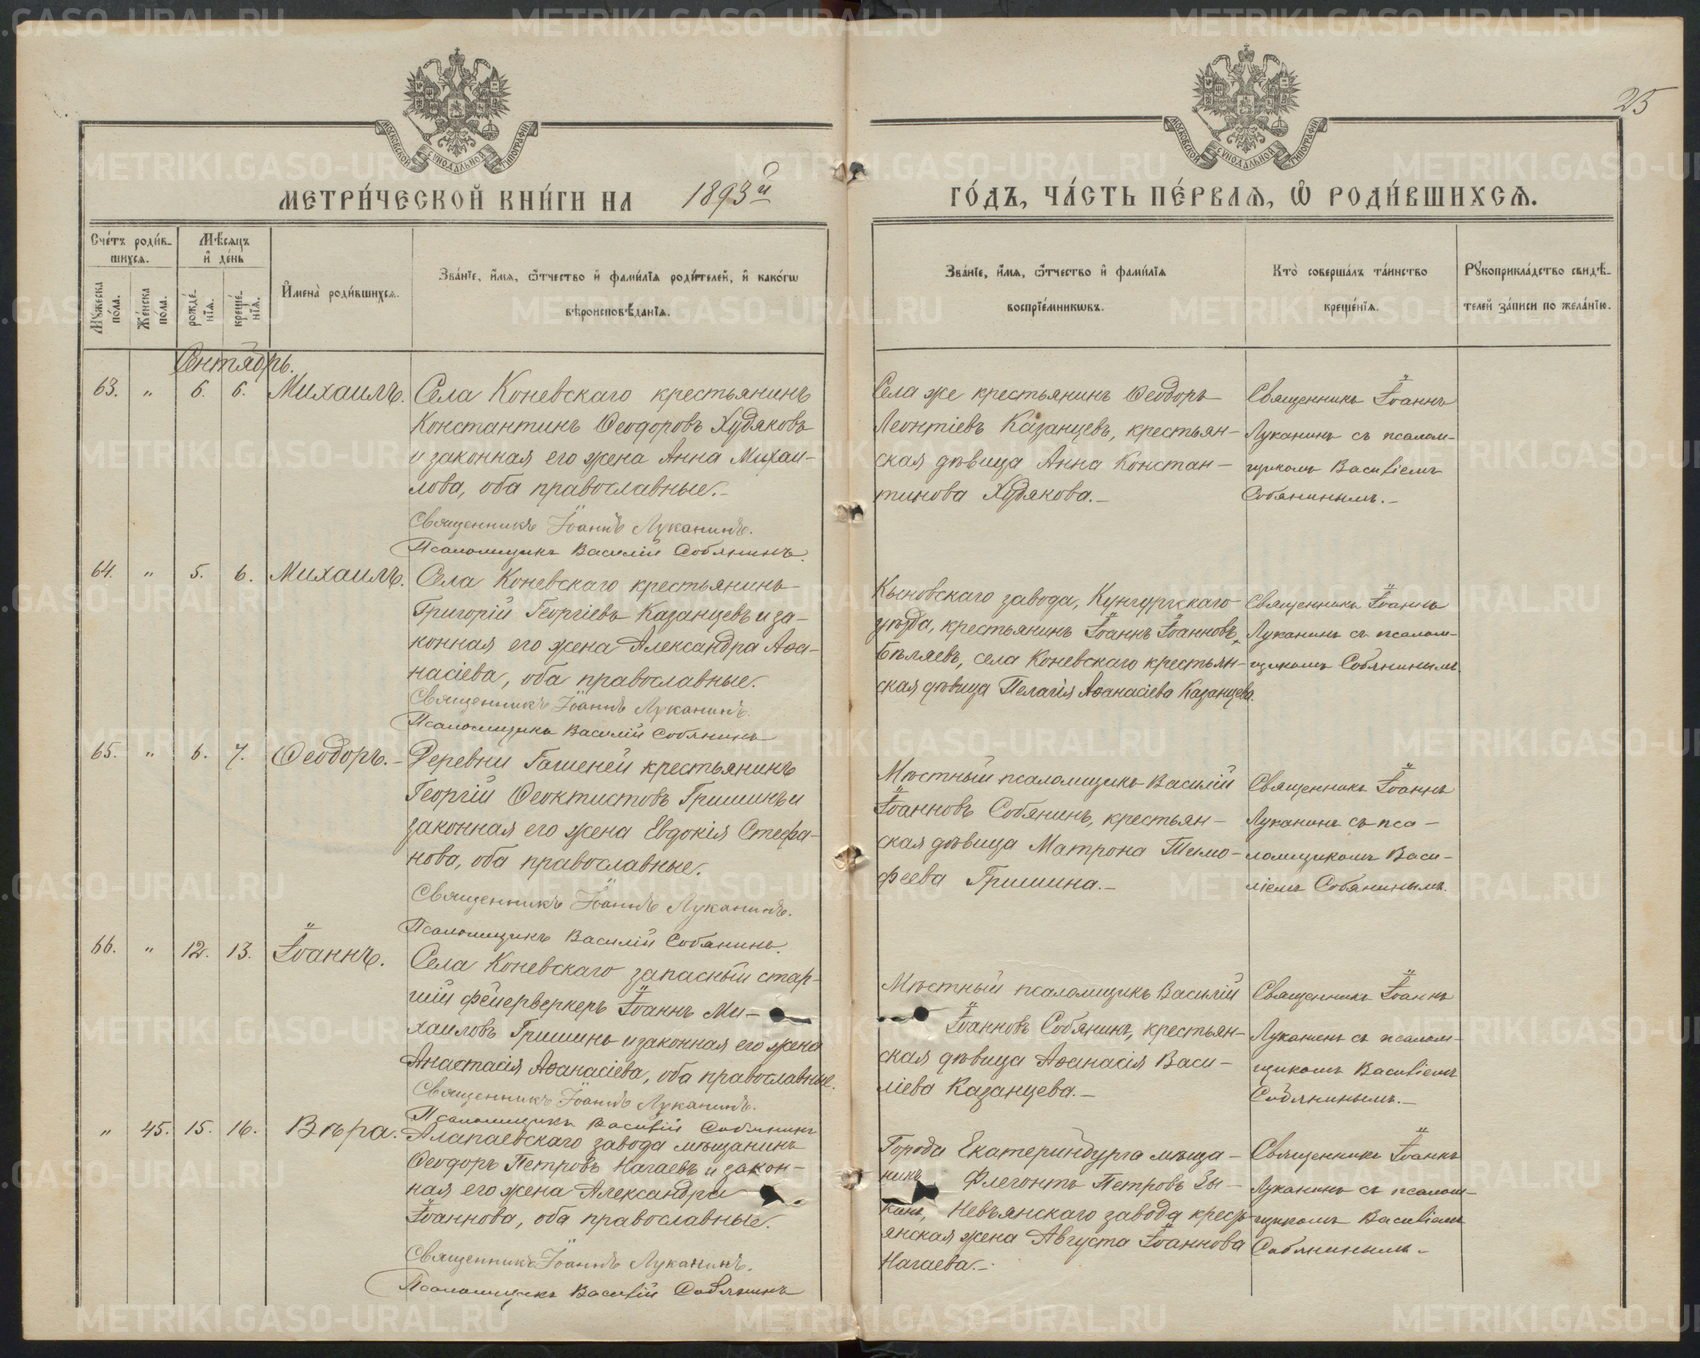 25
МЕТРИ́ЧЕСКОЙ КНИ́ГИ НА 1893й
ГО́ДЪ, ЧА́СТЬ ПЕ́РВАЯ, Ѽ РОДИ́ВШИХСЯ.
Сче́тъ роди́в-
шихся.
Мѣсяцъ
и҆ де́нь
Мꙋ́жеска по́ла.
Же́нска по́ла.
рожде́-
нїя.
креще́-
нїя.
И҆мена̀ роди́вшихся.
Зва́нїе, и҆́мя, ѻ҆́тчество и҆ фами́лїя роди́телей, и҆ како́гѡ
вѣроисповѣ́данїя.
Зва́нїе, и҆́мя, ѻ҆́тчество и҆ фами́лїя
воспрїе́мникѡвъ.
Кто̀ соверша́лъ та́инство
креще́нїя.
Рꙋкоприкла́дство свидѣ́-
телей за́писи по жела́нїю.
Сентябрь.
63. " 6. 6. Михаилъ.
Села Коневскаго крестьянинъ
Константинъ Ѳеодоровъ Худяковъ
и законная его жена Анна Михаи-
лова, оба православные.-
Священникъ Іоаннъ Луканинъ.
Псаломщикъ Василій Собянинъ.
Села же крестьянинъ Ѳеодоръ
Леонтіевъ Казанцевъ, крестьян-
ская дѣвица Анна Констан-
тинова Худякова.-
Священникъ Іоаннъ
Луканинъ съ псалом-
щикомъ Василіемъ
Собянинымъ.-
64. " 5. 6. Михаилъ.
Села Коневскаго крестьянинъ
Григорій Георгіевъ Казанцевъ и за-
конная его жена Александра Аѳа-
насіева, оба православные.
Священникъ Іоаннъ Луканинъ.
Псаломщикъ Василій Собянинъ
Кыновскаго завода, Кунгурскаго
уѣзда, крестьянинъ Іоаннъ Іоанновъ
Бѣляевъ, села Коневскаго крестьян-
ская дѣвица Пелагія Аѳанасіева Казанцева.
Священникъ Іоаннъ
Луканинъ съ псалом-
щикомъ Собянинымъ.
65. " 6. 7. Ѳеодоръ.-
Деревни Гашеней крестьянинъ
Георгій Ѳеоктистовъ Гришинъ и
законная его жена Евдокія Стефа-
нова, оба православные.
Священникъ Іоаннъ Луканинъ.
Псаломщикъ Василій Собянинъ
Мѣстный псаломщикъ Василій
Іоанновъ Собянинъ, крестьян-
ская дѣвица Матрона Тимо-
феева Гришина.-
Священникъ Іоаннъ
Луканинъ съ пса-
ломщикомъ Васи-
ліемъ Собянинымъ.
66. " 12. 13. Іоаннъ.
Села Коневскаго запасный стар-
шій фейерверкеръ Іоаннъ Ми-
хаиловъ Гришинъ и законная его жена
Анастасія Аѳанасіева, оба православные.
Священникъ Іоаннъ Луканинъ.
Псаломщикъ Василій Собянинъ
Мѣстный псаломщикъ Василій
Іоанновъ Собянинъ, крестьян-
ская дѣвица Аѳанасія Васи-
ліева Казанцева.-
Священникъ Іоаннъ
Луканинъ съ псалом-
щикомъ Василіемъ
Собянинымъ.-
" 45. 15. 16. Вѣра.
Алапаевскаго завода мѣщанинъ
Ѳеодоръ Петровъ Нагаевъ и закон-
ная его жена Александра
Іоаннова, оба православные.
Священникъ Іоаннъ Луканинъ.
Псаломщикъ Василій Собянинъ
Города Екатеринбурга мѣща-
нинъ Флегонтъ Петровъ Зы-
кинъ, Невьянскаго завода кресть-
янская жена Августа Іоаннова
Нагаева.-
Священникъ Іоаннъ
Луканинъ съ псалом-
щикомъ Василіемъ
Собянинымъ-